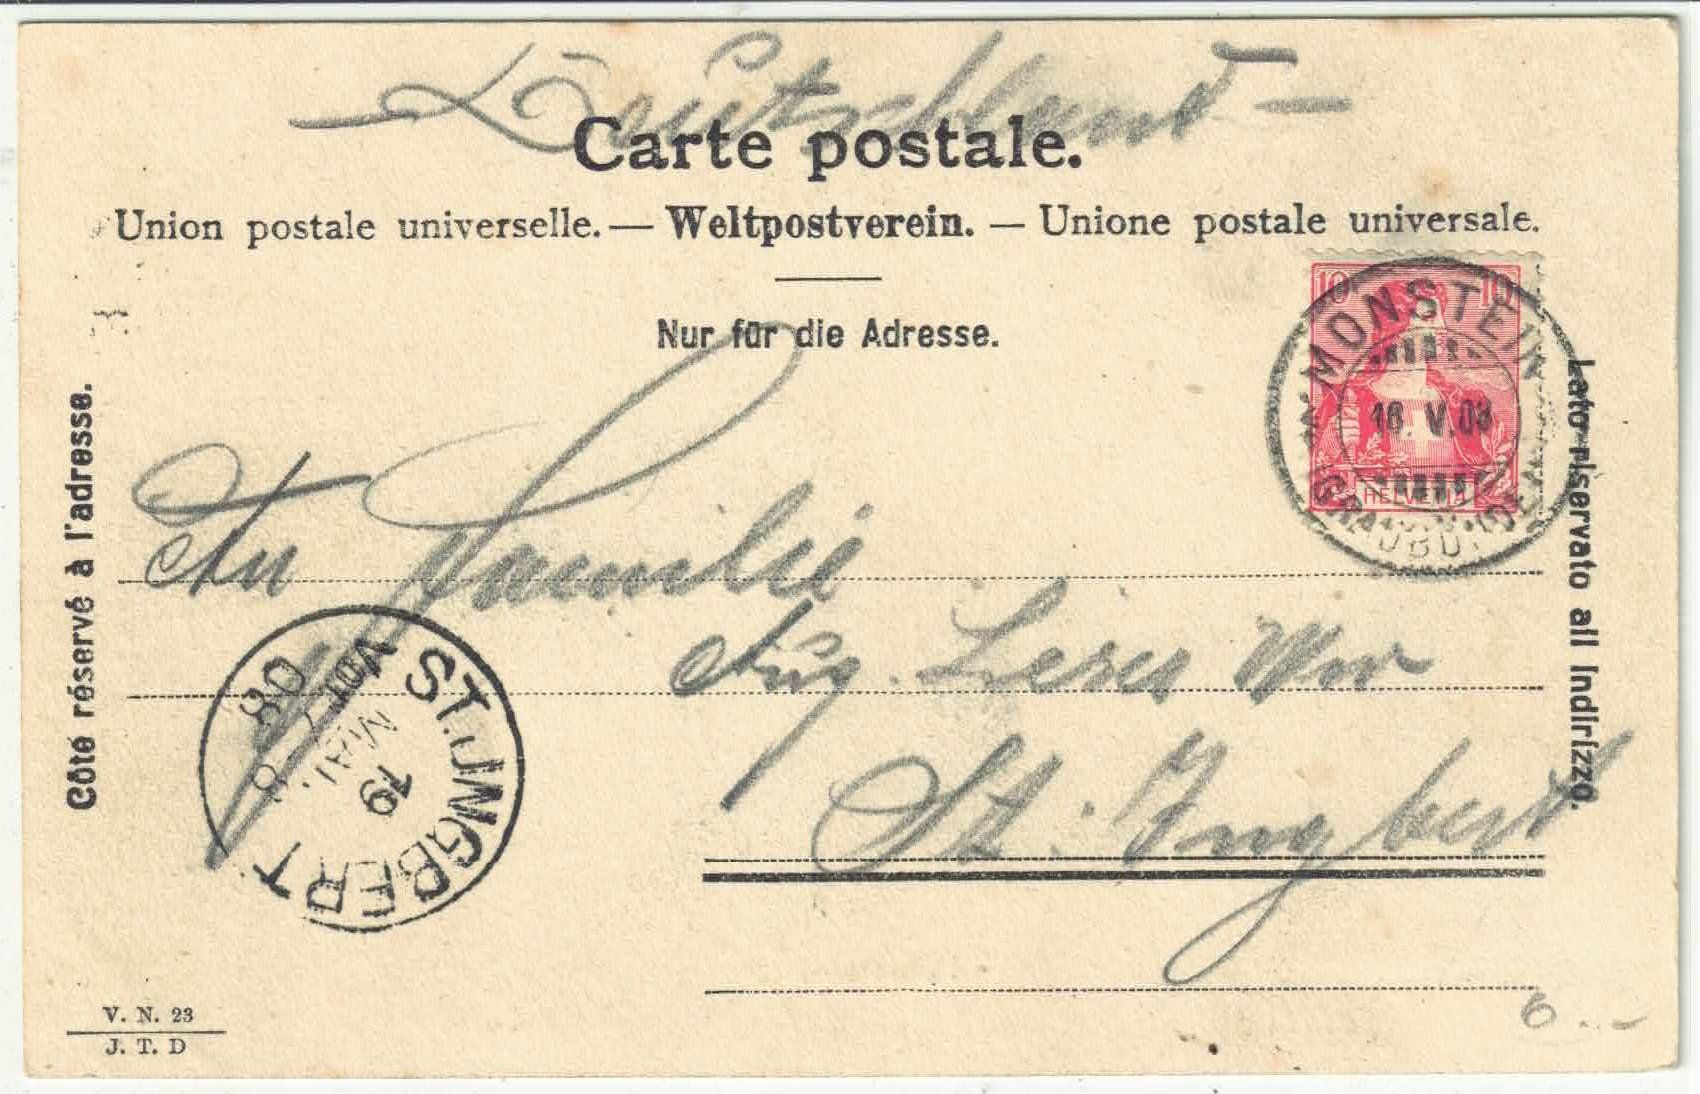 Deutschland -
Carte postale.
Union postale universelle. — Weltpostverein. — Unione postale universale.
Nur für die Adresse.
Côté réservé à l'adresse.
Lato riservato all Indirizzo.
10 10
HELVETIA
MONSTEIN
16. V. 08
(GRAUBÜNDEN)
An Familie
Aug.
St. Ingbert
ST. INGBERT
19
MAI.
VOR 7-8
08
V. N. 23
J. T. D
6.-